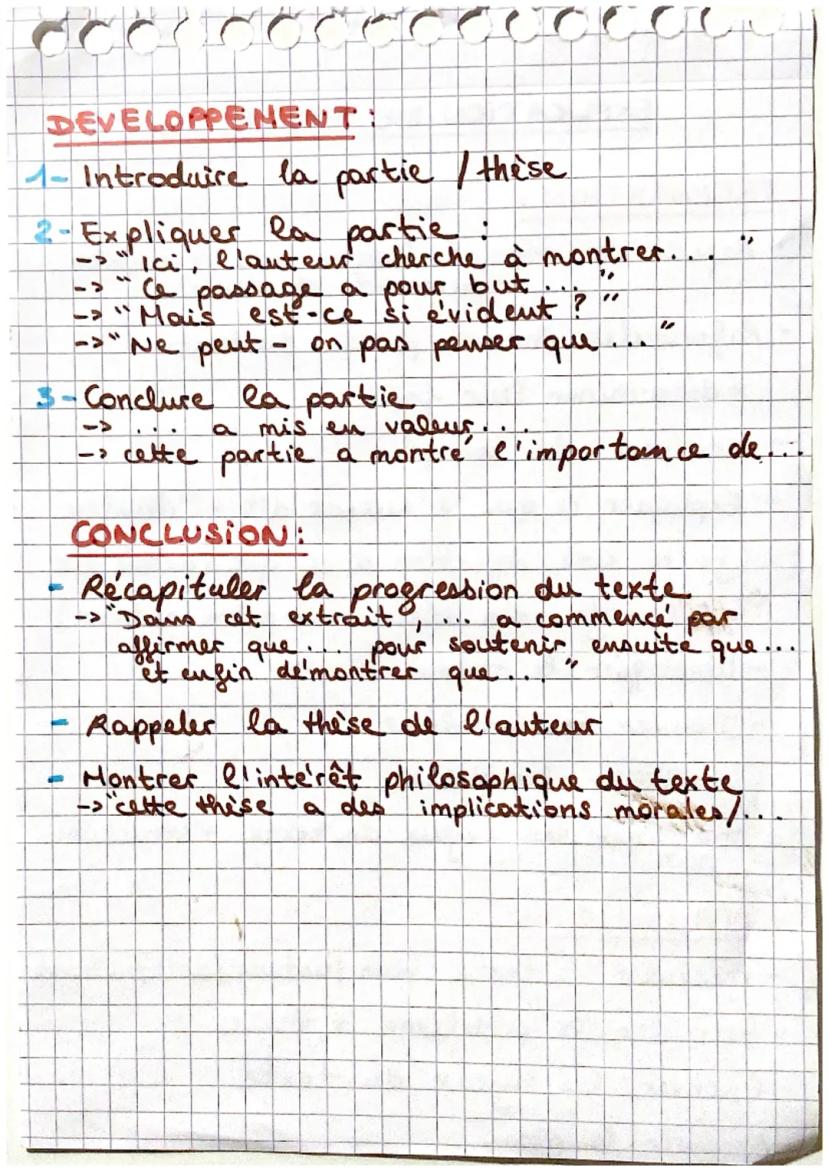 DEVELOPPEMENT:
1- Introduire la partie / thèse
2- Expliquer la partie :
-> "Ici, l'auteur cherche à montrer... "
-> " Ce passage a pour but ... "
-> " Mais est-ce si évident ? "
-> " Ne peut-on pas penser que ... "
3- Conclure la partie
-> ... a mis en valeur...
-> cette partie a montré l'importance de...
CONCLUSION:
- Récapituler la progression du texte
-> "Dans cet extrait, ... a commencé par
affirmer que... pour soutenir ensuite que...
et enfin démontrer que..."
- Rappeler la thèse de l'auteur
- Montrer l'intérêt philosophique du texte
-> "cette thèse a des implications morales/...